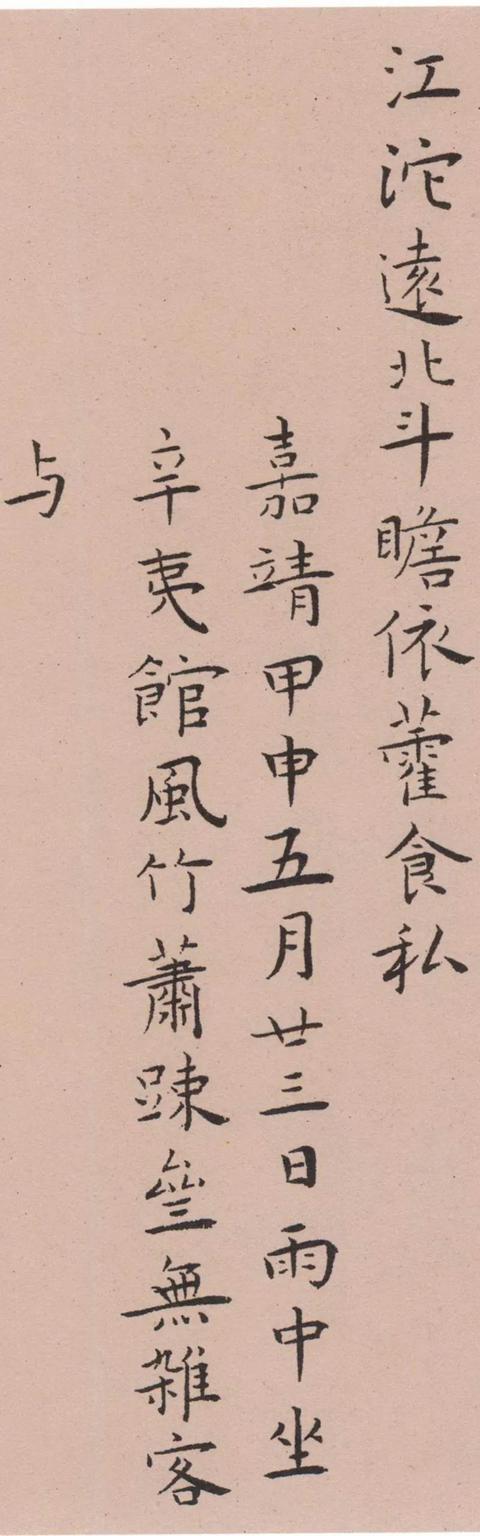 江沱遠北斗瞻依藿食私
嘉靖甲申五月廿三日雨中坐
辛夷館風竹蕭踈無雜客
与